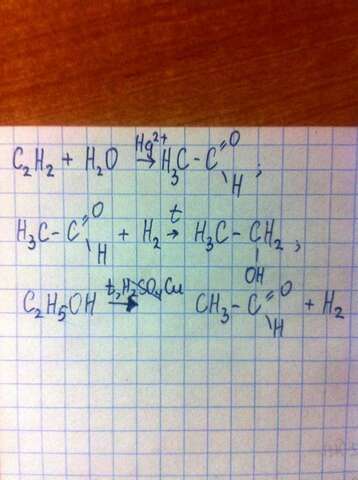 C₂H₂ + H₂O →(Hg²⁺) H₃C-C(=O)-H ;
H₃C-C(=O)-H + H₂ →(t) H₃C-CH₂-OH ,
C₂H₅OH →(t, Cu) CH₃-C(=O)-H + H₂